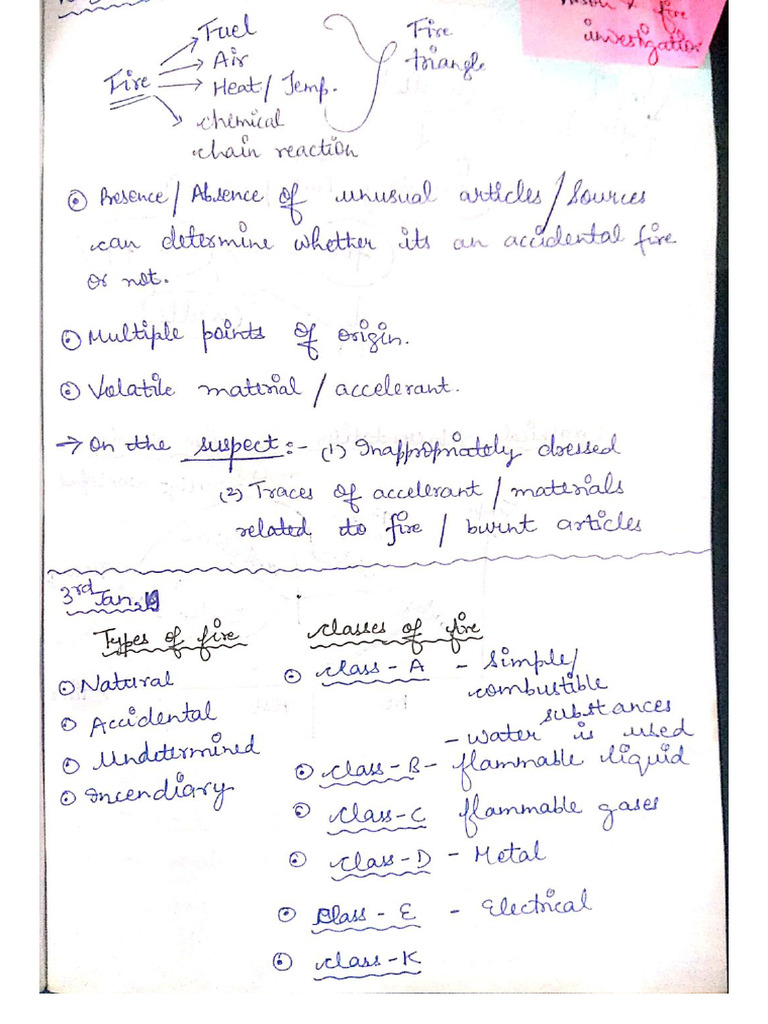 & fire
investigation
Fire
Fuel
Air
Heat/Temp.
chemical
chain reaction
Fire
triangle
Presence/Absence of unusual articles/Sources
can determine whether its an accidental fire
or not.
Multiple points of origin.
Volatile material/accelerant.
→ On the suspect:- (1) Inappropriately dressed
(2) Traces of accelerant/materials
related to fire / burnt articles
3rd Jan,
Types of fire
Natural
Accidental
Undetermined
Incendiary
Classes of fire
Class-A - Simple/
combustible
substances
- Water is used
Class-B- flammable liquid
Class-C flammable gases
Class-D - Metal
Class-E - Electrical
Class-K